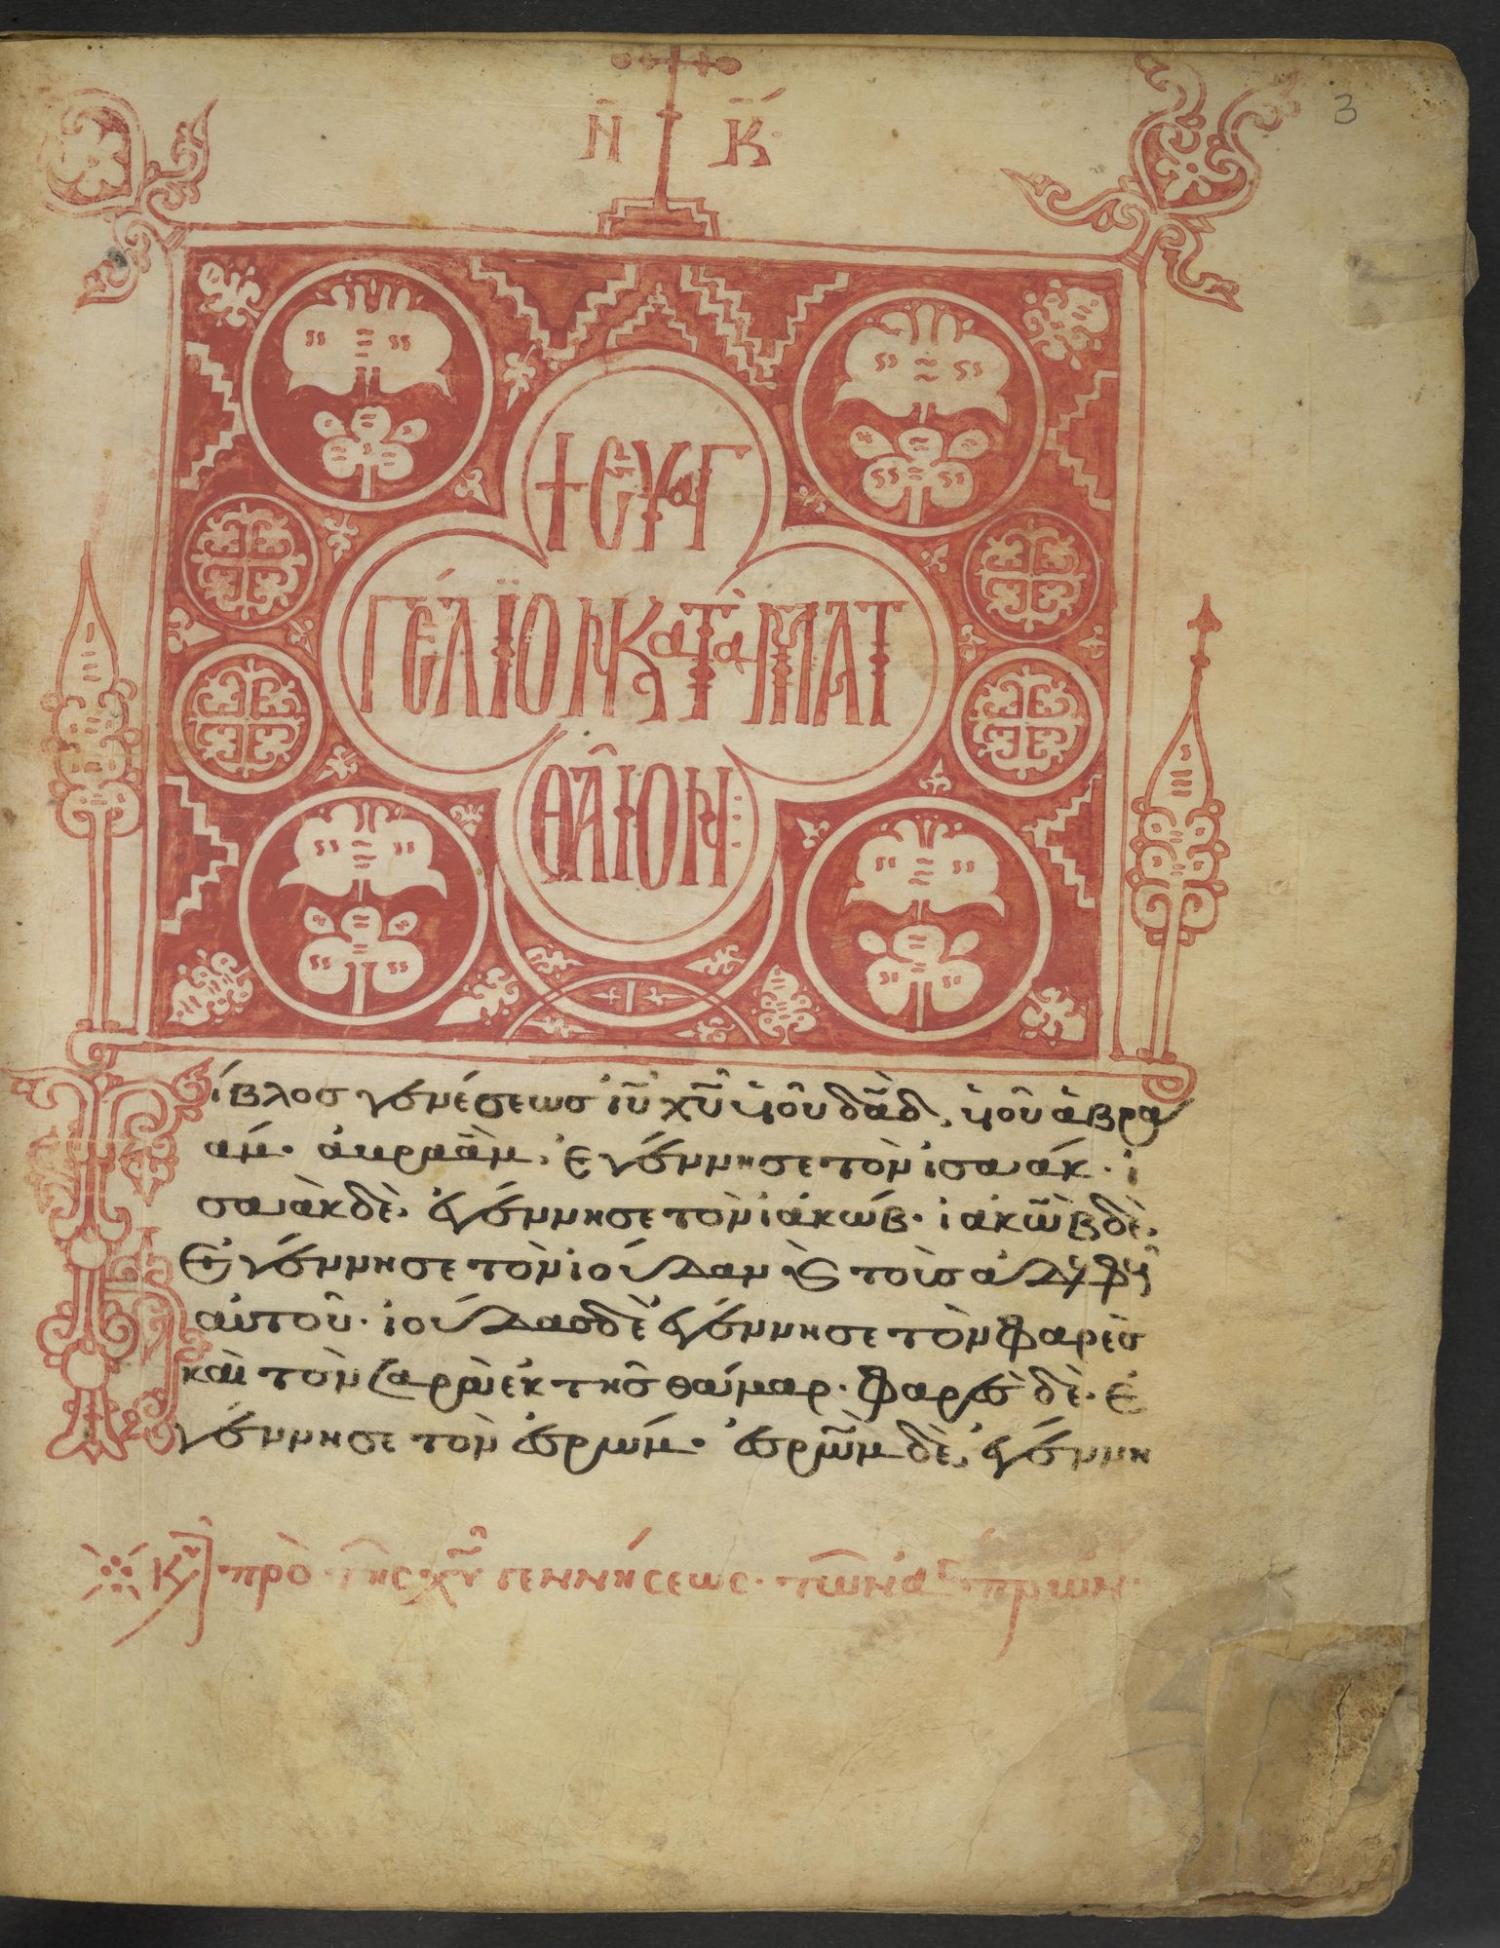 3
Ν Κ
+ ΕΥΑΓ
ΓΕΛΙΟΝ ΚΑΤΑ ΜΑΤ
ΘΑΙΟΝ:
Βίβλος γενέσεως ἰυ χυ ὑιοῦ δαδ, ὑιοῦ ἀβρα
αμ. ἀβραὰμ, ἐγέννησε τὸν ἰσαάκ. ἰ
σαὰκ δὲ, ἐγέννησε τὸν ἰάκώβ. ἰακὼβ δὲ,
ἐγέννησε τὸν ἰούδαν καὶ τοὺς ἀδελφοὺς
αὐτοῦ. ἰούδας δὲ ἐγέννησε τὸν φαρὲς
καὶ τὸν ζαρὰ ἐκ τῆς θάμαρ. φαρὲς δὲ. ἐ
γέννησε τὸν ἐσρώμ. ἐσρὼμ δὲ, ἐγέννη
Κυ πρὸ τῆς χυ γεννήσεως. τῶν ἁγ πρων.